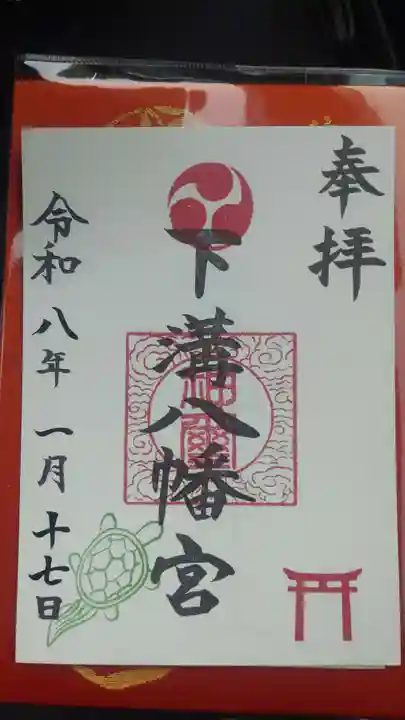 奉拝
下溝八幡宮
令和八年一月十七日